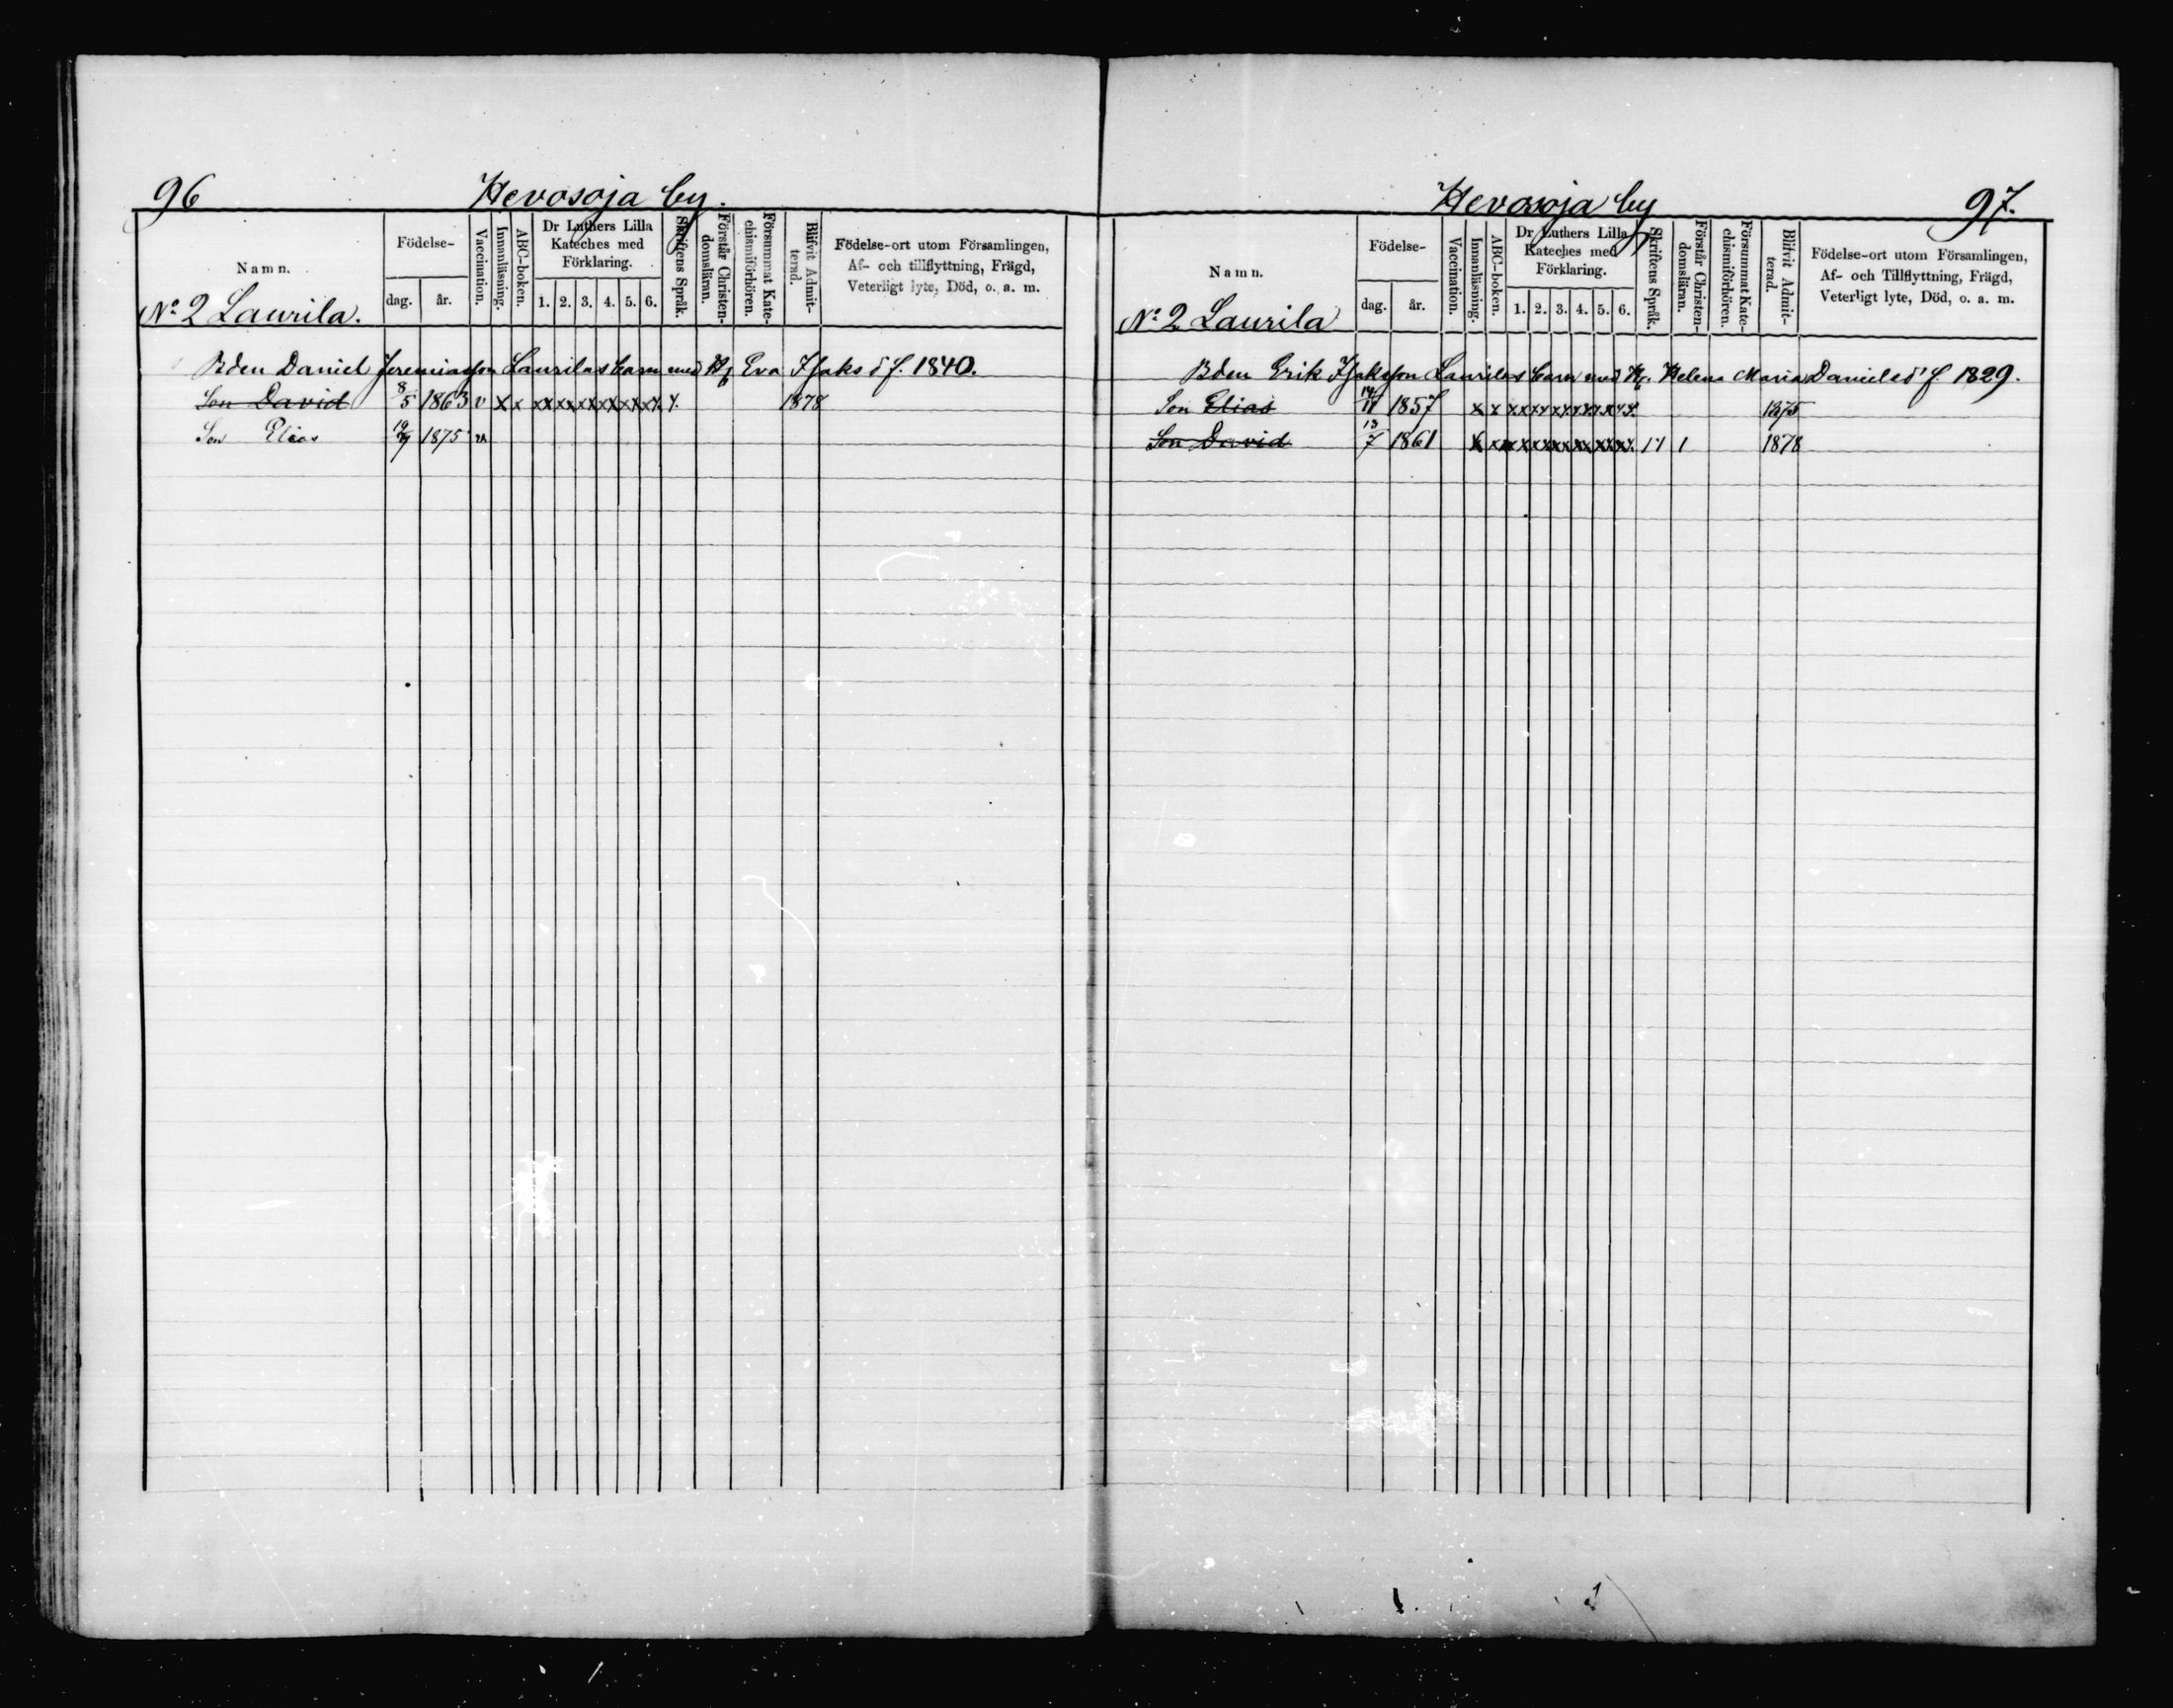 96
Hevosoja by.
Namn.
Födelse-
dag.
år.
Vaccination.
Innanläsning.
ABC-boken.
Dr Luthers Lilla
Kateches med
Förklaring.
1. 2. 3. 4. 5. 6.
Skriftens Språk.
Förstår Christen-
domsläran.
Försummat Kate-
chismiförhören.
Blifvit Admit-
terad.
Födelse-ort utom Församlingen,
Af- och tillflyttning, Frägd,
Veterligt lyte, Död, o. a. m.
No 2 Laurila.
Bden Daniel Jeremiasson Laurilas barn med H. Eva Isaks d f. 1840.
Son David 8/5 1863 v x x xx xx xx xx xx xx x 1878
Son Elias 1875 v
Hevosoja by
97.
Namn.
Födelse-
dag.
år.
Vaccination.
Innanläsning.
ABC-boken.
Dr Luthers Lilla
Kateches med
Förklaring.
1. 2. 3. 4. 5. 6.
Skriftens Språk.
Förstår Christen-
domsläran.
Försummat Kate-
chismiförhören.
Blifvit Admit-
terad.
Födelse-ort utom Församlingen,
Af- och Tillflyttning, Frägd,
Veterligt lyte, Död, o. a. m.
No 2 Laurila
Bden Erik Isaksson Laurilas barn med H. Helena Maria Daniels d f. 1829.
Son Elias 1857 x x xx xx xx xx xx xx 1875
Son David 13/7 1861 x xx xx xx xx xx xx xx 1 1 1 1878